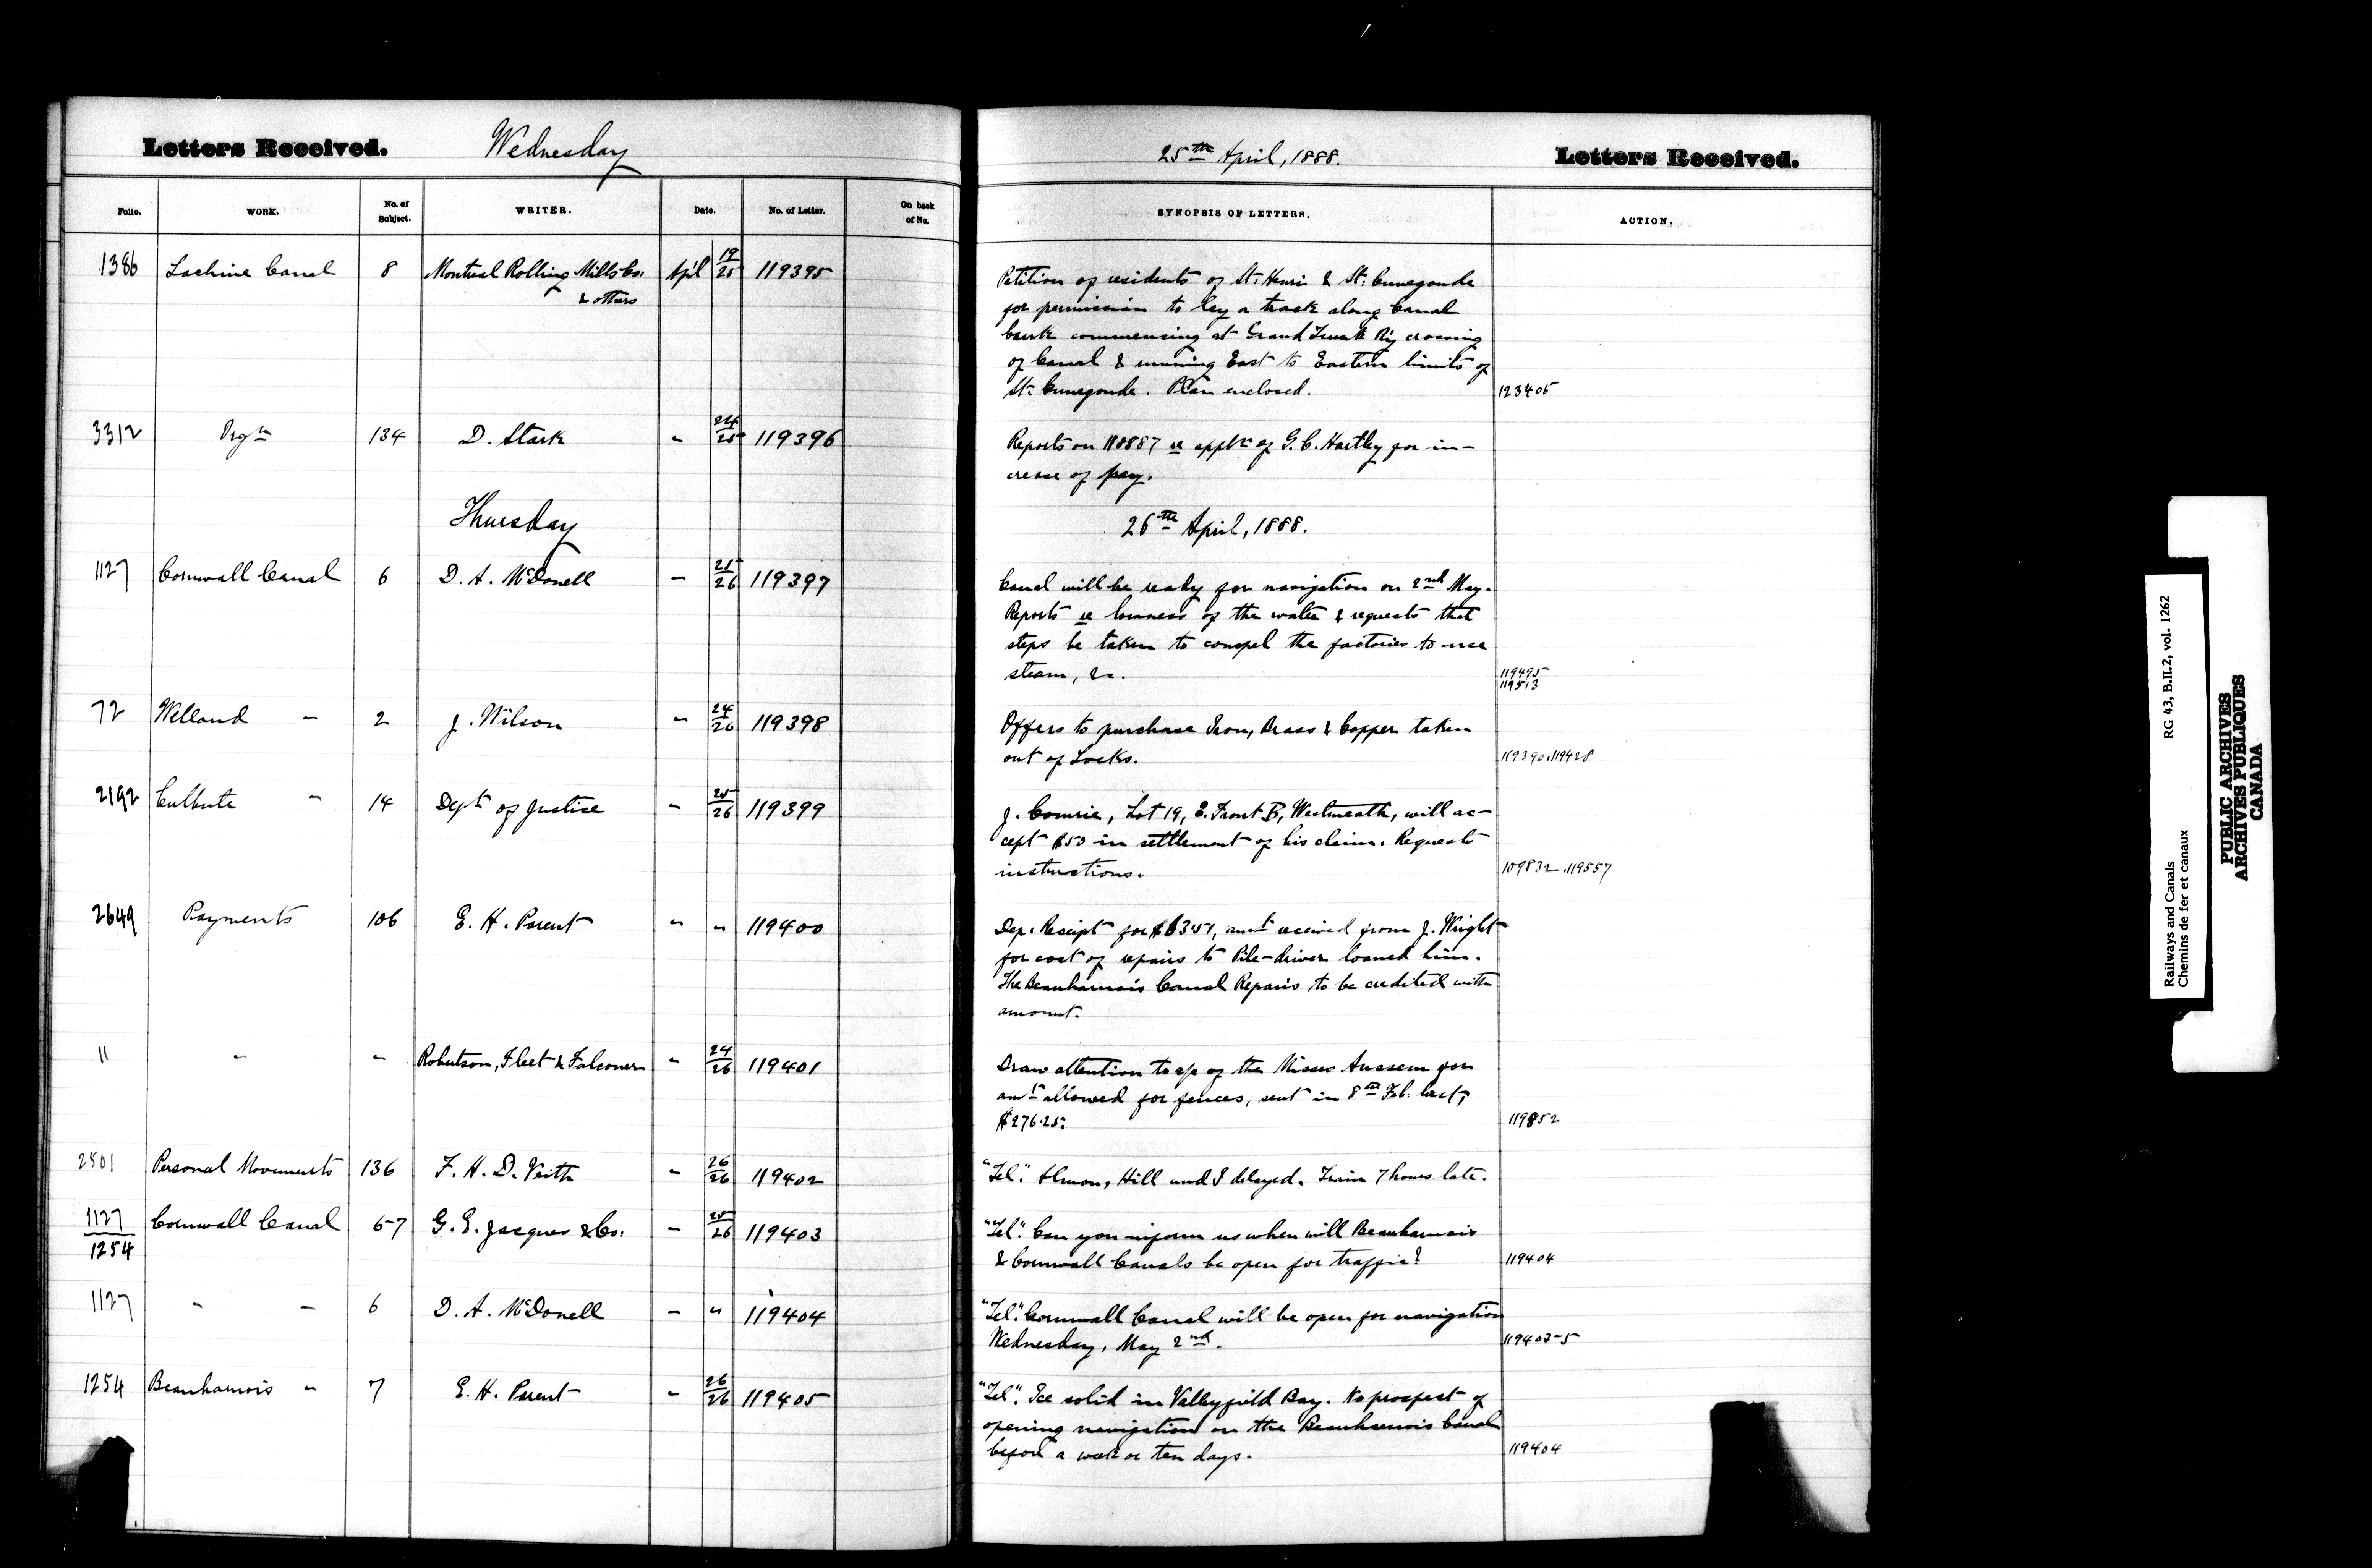 Letters Received. Wednesday 25th April, 1888. Letters Received.
Folio. WORK. No. of Subject. WRITER. Date. No. of Letter. On back of No. SYNOPSIS OF LETTERS. ACTION.
1386 Lachine Canal 8 Montreal Rolling Mills Co: Apl 19/25 119395
& others
Petition of residents of St. Henri & St. Cunegonde
for permission to lay a track along Canal
bank commencing at Grand Trunk Ry crossing
of Canal & running East to Eastern limits of
St. Cunegonde. Plan enclosed. 123405
3312 134 D. Stark " 24/25 119396
Reports on 118887 re appln of G. C. Hartley for in-
crease of pay.
Thursday 26th April, 1888.
1127 Cornwall Canal 6 D. A. McDonell " 25/26 119397
Canal will be ready for navigation on 2nd May.
Reports re lowness of the water & requests that
steps be taken to compel the factories to use
steam, &c. 119495
119513
72 Welland " 2 J. Wilson " 24/26 119398
Offers to purchase Iron, Brass & Copper taken
out of Locks. 119390.119428
2192 Culbute " 14 Dept. of Justice " 25/26 119399
J. Comrie, Lot 19, E. Front B, Westmeath, will ac-
cept $50 in settlement of his claim. Requests
instructions. 109832.119557
2649 Payments 106 E. H. Parent " " 119400
Dep. Receipt for amt received from J. Wright
for cost of repairs to Pile-driver loaned him.
The Beauharnois Canal Repairs to be credited with
amount.
11 " " Robertson, Fleet & Falconer " 24/26 119401
Draw attention to a/c of the Misses for
amt allowed for fences, sent in 8th Feb. last,
$276.25. 119852
2501 Personal Movements 136 F. H. D. Veith " 26/26 119402
"Tel". Almon, Hill and I delayed. Train 7 hours late.
1127/1254 Cornwall Canal 6-7 G. E. Jacques & Co: " 25/26 119403
"Tel". Can you inform us when will Beauharnois
& Cornwall Canals be open for traffic? 119404
1127 " " 6 D. A. McDonell " " 119404
"Tel". Cornwall Canal will be open for navigation
Wednesday, May 2nd. 119403-5
1254 Beauharnois " 7 E. H. Parent " 26/26 119405
"Tel". Ice solid in Valleyfield Bay. No prospect of
opening navigation on the Beauharnois Canal
before a week or ten days. 119404
Railways and Canals RG 43, B.II.2, vol. 1262
Chemins de fer et canaux
PUBLIC ARCHIVES
ARCHIVES PUBLIQUES
CANADA